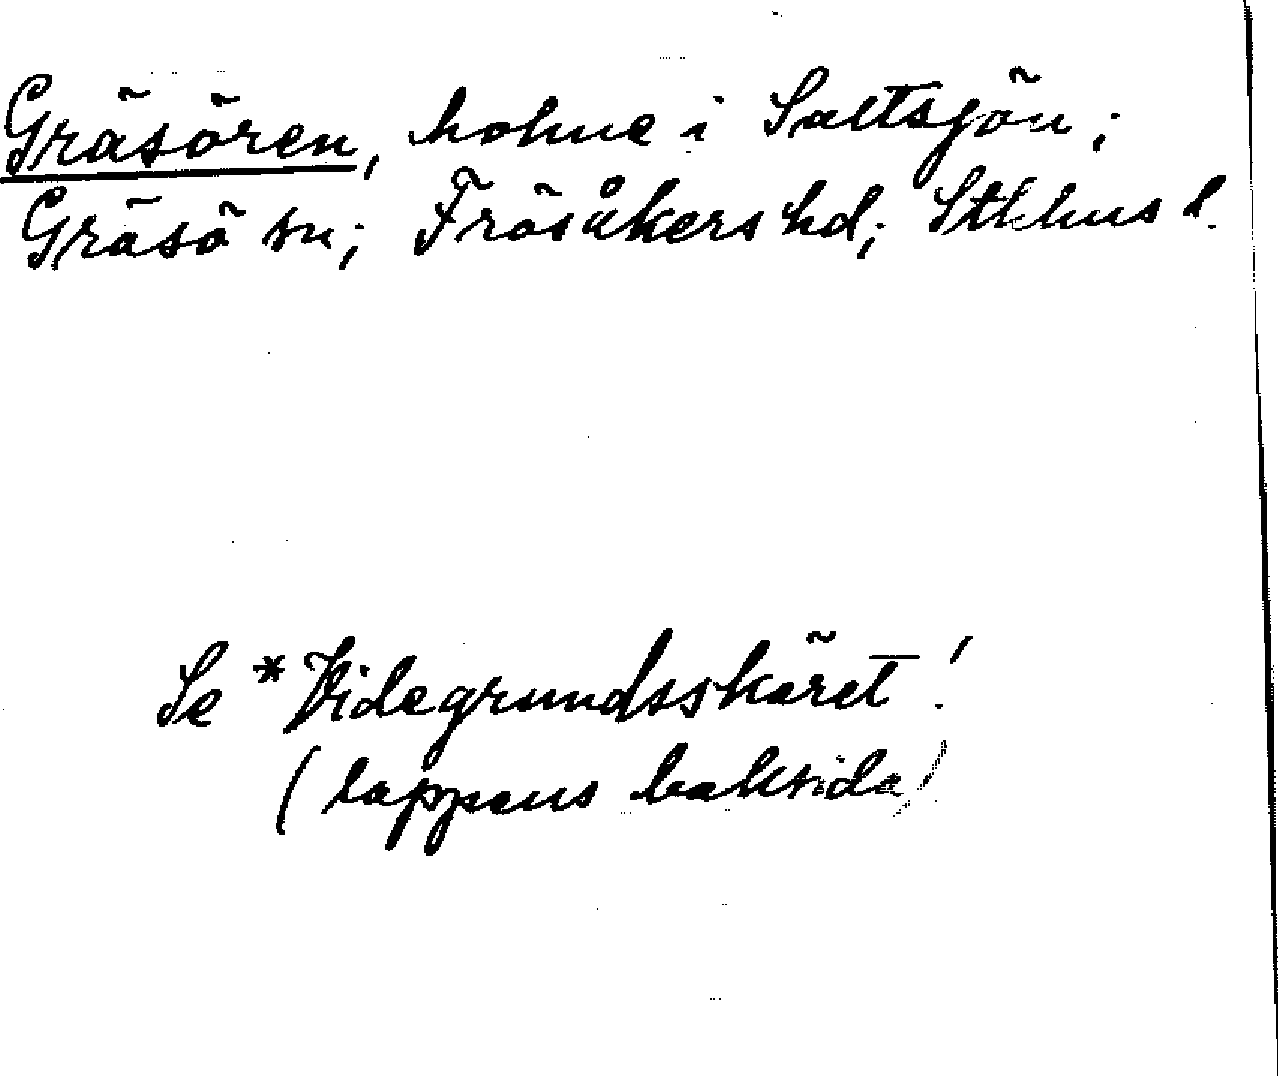 Gräsören, holme i Saltsjön;
Gräsö sn; Frösåkers hd; Sthlms l.
Se *Videgrundsskäret!
(lappens baksida)